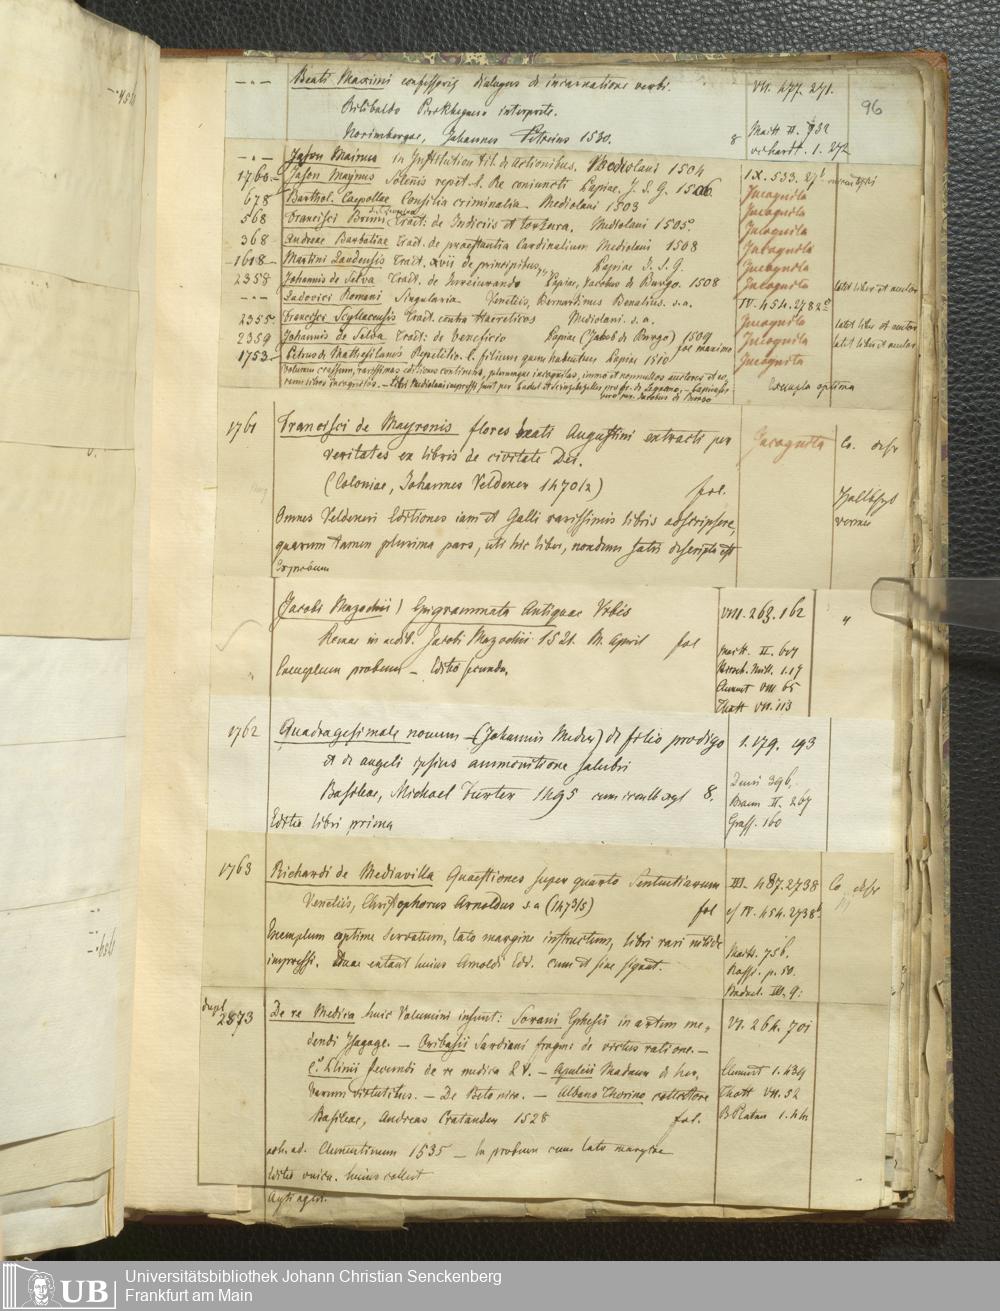 96
Beati Maximi confessoris dialogus de incarnatione verbi. VII. 277. 271.
Bilibaldo Pirckheymero interprete.
Norimbergae, Johannes Petreius 1530. 8 Maitt II. 732
1. 272
Jason Mainus in Institution tit. de actionibus. Mediolani 1504 IX. 533. 27
1760 Jason Maynus Solennis repet. l. Re coniuncti Papiae, J. S. G. 1506. Incognita
678 Barthol. Caepollae Consilia criminalia Mediolani 1503 Incognita
568 Francisci Bruni Tract. de Indiciis et tortura. Mediolani 1505 Incognita
368 Andreae Barbatiae Tract. de praestantia Cardinalium Mediolani 1508 Incognita
1618 Martini Laudensis Tract. XVII de principibus Papiae J. S. G. Incognita
2358 Johannis de Selva Tract. de Jureiurando Papiae, Jacobus de Burgo. 1508 Incognita latet liber et auctor
Ludovici Romani Singularia Venetiis, Bernardinus Benalius. s. a. IV. 454. 2782
2355 Francisci Tract. contra Haereticos Mediolani. s. a. Incognita latet liber et auctor
2359 Johannis de Selva Tract: de beneficio Papiae (Jakob de Burgo) 1509 Incognita latet liber et auctor
fol maximo
1753 Petrus de Matthesilanis Repetitio. l. filium quem habentem Papiae 1510 Incognita
Volumen crassum, rarissimas editiones continens, plerumque incognitas, immo et nonnullos auctores et eorum libros incognitos. Exempla optima
1761 Francisci de Mayronis flores beati Augustini extracti per Incognita Co.
veritates ex libris de civitate Dei.
(Coloniae, Johannes Veldener 1470/2) fol.
Omnes Veldeneri Editiones iam et Galli rarissimis libris adscripsere,
quarum tamen plurima pars, uti hic liber, nondum satis descripta est
Ex probum
Jacobi Mazochii) Epigrammata Antiquae Urbis VIII. 263. 162 "
Romae in aedib. Jacobi Mazochii 1521. M. April fol Maitt. II. 607
Exemplum probum — Editio secunda. Hirsch. Mill. 1.17
Clement VIII 65
Thott VII. 113
1762 Quadragesimale novum (Johannis Meder) de filio prodigo 1. 179. 193
et de angeli ipsius ammonitione salubri
Basileae, Michael Furter 1495 cum 8. Denis 396.
Braun II. 267
Editio libri prima Graff. 160
1763 Richardi de Mediavilla Quaestiones super quarto Sententiarum III. 487. 2738 Co
Venetiis, Christophorus Arnoldus s. a (1473/5) fol cf IV. 454. 2738
Exemplum optime servatum, lato margine instructum, libri rari nitide Maitt. 756.
impressi. Duae extant huius Arnoldi Edd. cum et sine signat. Rossi. p. 50.
III. 9:
dupl
2873 De re Medica huic Volumini insunt: Sorani Ephesii in artem me- VI. 264. 701
dendi Isagoge. — Oribasii Sardiani fragm: de victus ratione. —
C. Plinii secundi de re medica L V. — Apuleii Madaur de her- Clement 1. 439
barum virtutibus. — De Betonica. — Albano Thorino collectore Thott VII. 52
Basileae, Andreas Cratander 1528 fol.
adh. ad. Clementinum 1535 — Ex probum cum lato margine
Editio unica huius collect
Universitätsbibliothek Johann Christian Senckenberg
Frankfurt am Main
UB